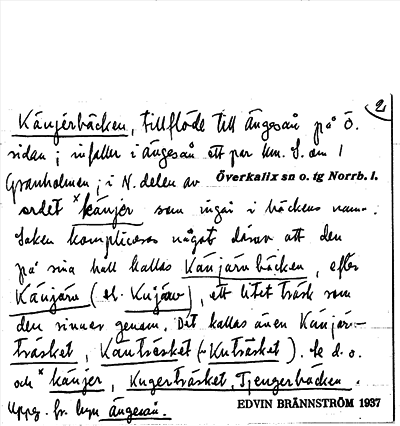 2
Känjerbäcken, tillflöde till Ängesån på Ö.
sidan; infaller i Ängesån ett par km. S. om
Granholmen; i N. delen av Överkalix sn o. tg Norrb. l.
ordet ˣkänjer som ingår i bäckens namn.
Saken kompliceras något därav att den
på sina håll kallas Känjärvbäcken, efter
Känjärv (el. Kujärv), ett litet träsk som
den rinner genom. Det kallas även Känjärv-
träsket, Kanträsket (~Kuträsket). Se d.o.
och ˣkänjer, Kugerträsket, Tjengerbäcken.
Uppg. fr. byn Ängesån.
EDVIN BRÄNNSTRÖM 1937